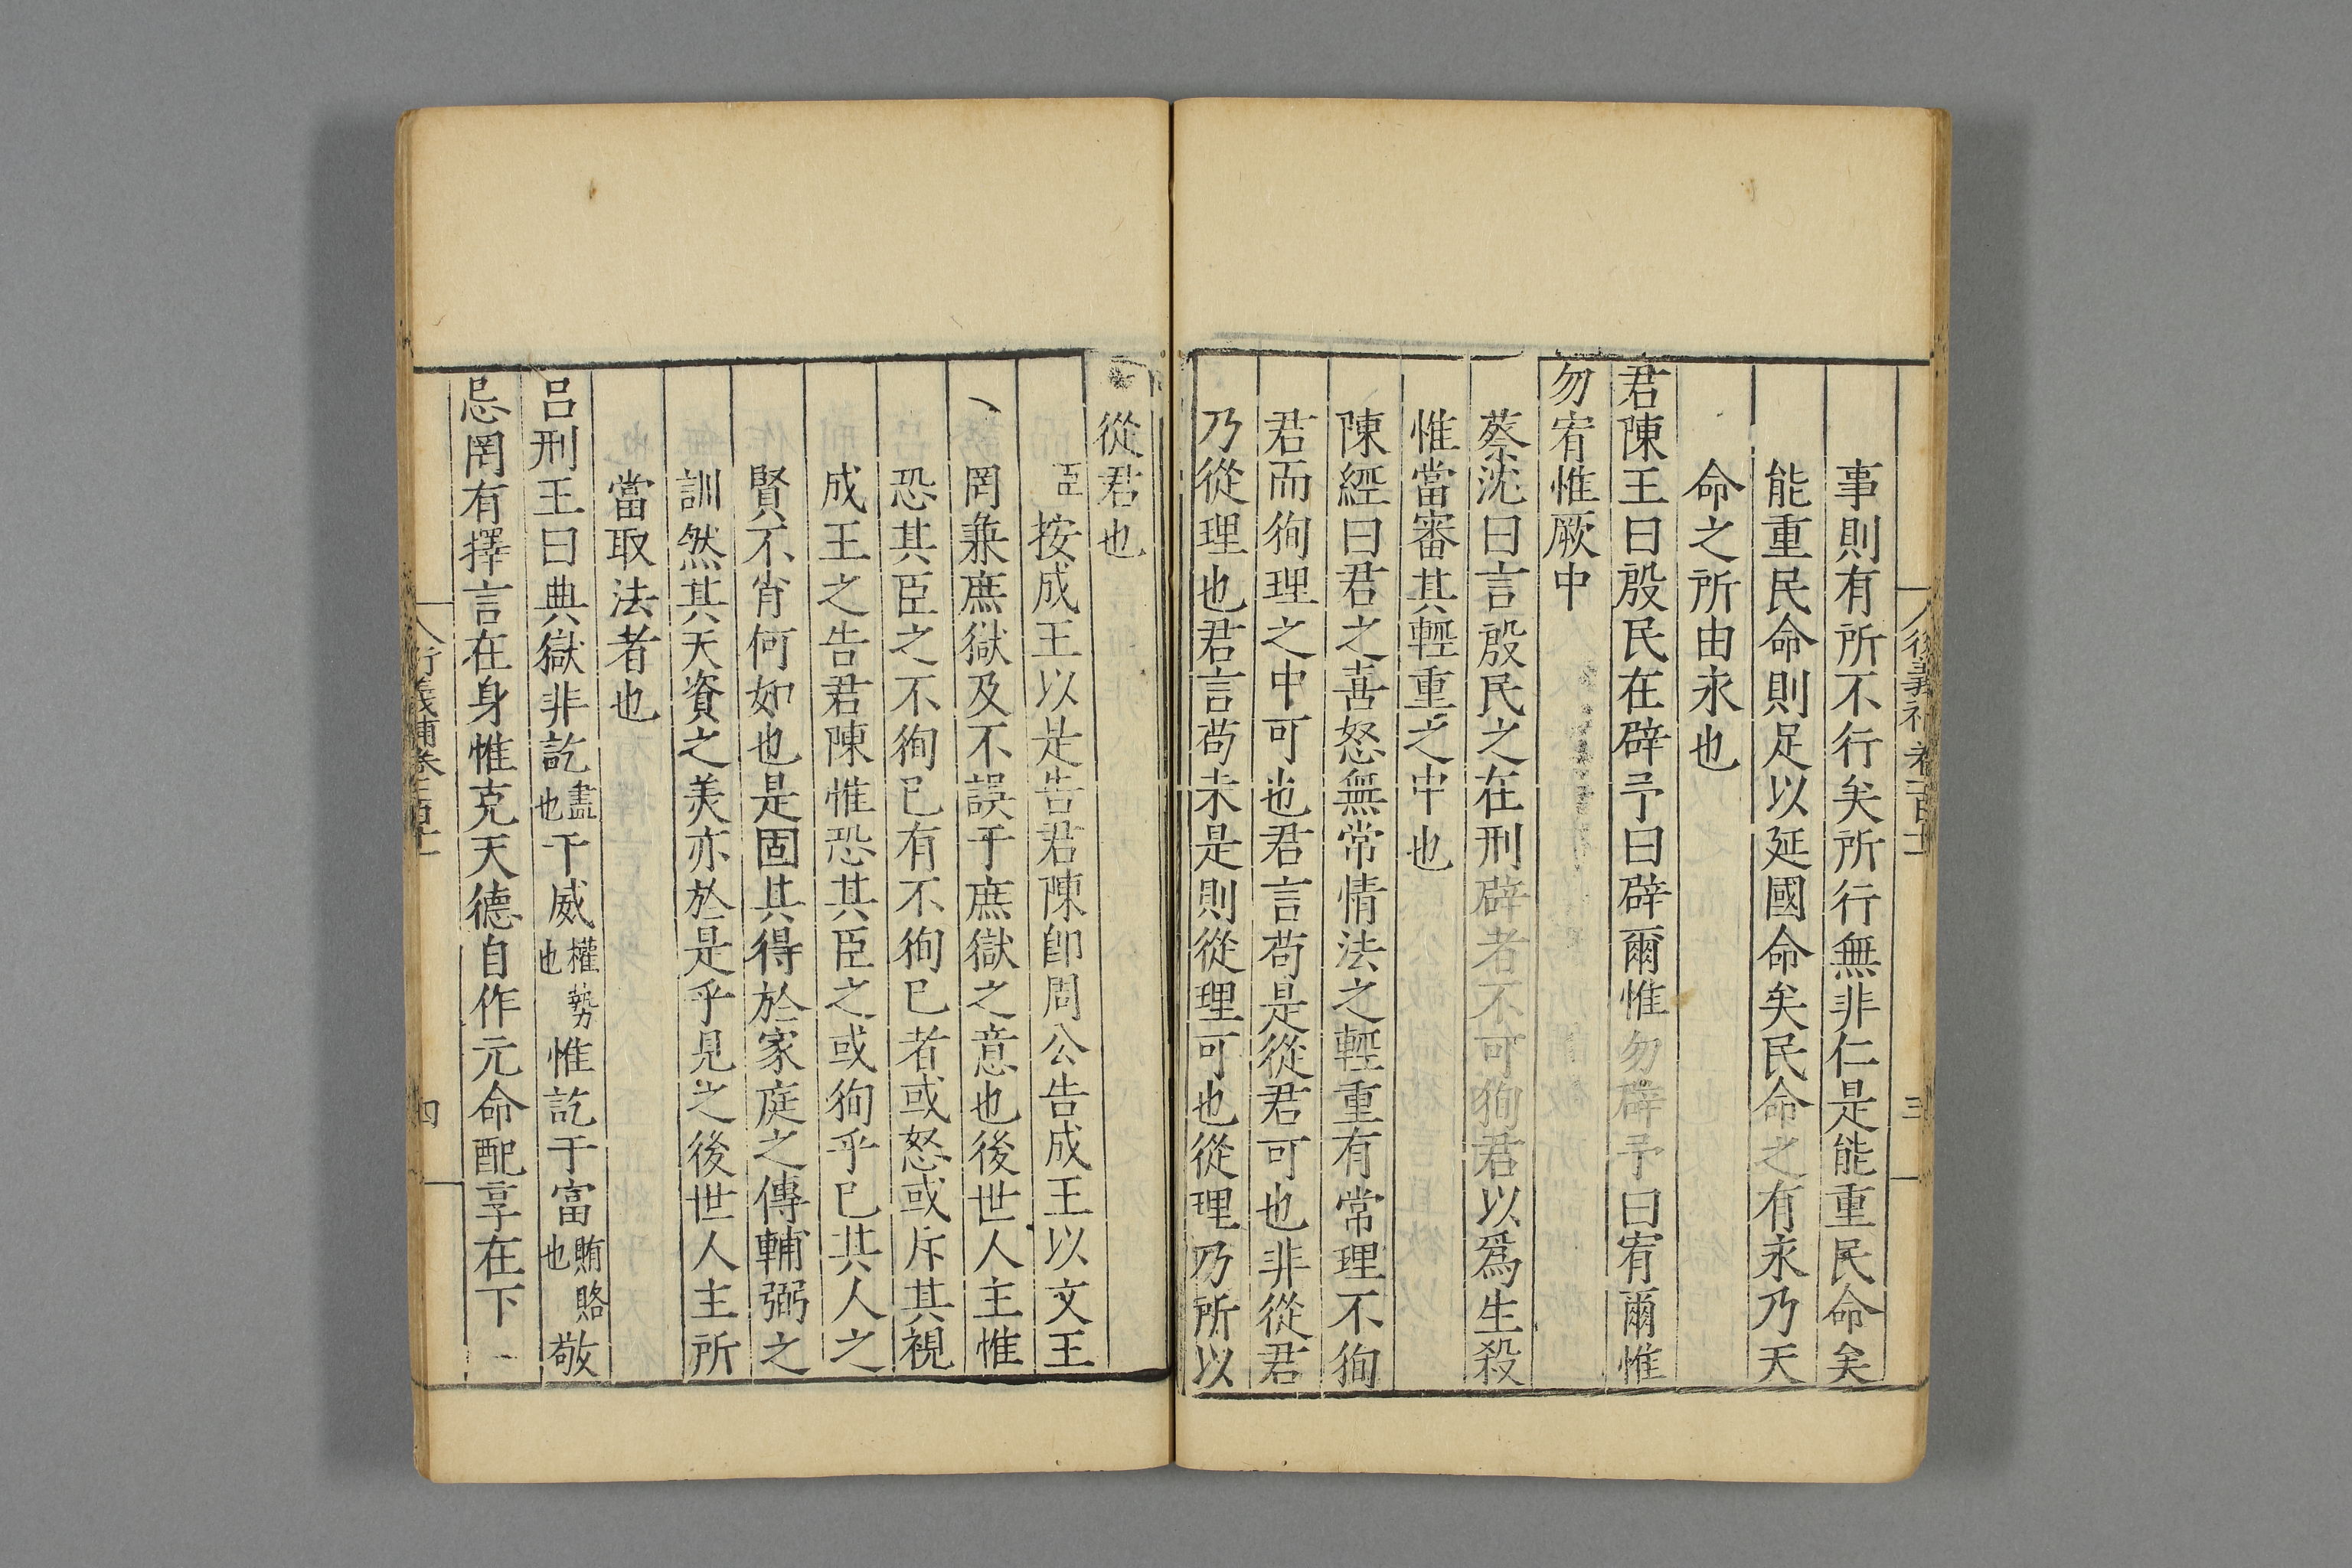 事則有所不行矣所行無非仁是能重民命矣
能重民命則足以延國命矣民命之有永乃天
命之所由永也
君陳王曰殷民在辟予曰辟爾惟勿辟予曰宥爾惟
勿宥惟厥中
蔡沈曰言殷民之在刑辟者不可徇君以爲生殺
惟當審其輕重之中也
陳經曰君之喜怒無常情法之輕重有常理不徇
君而徇理之中可也君言苟是從君可也非從君
乃從理也君言苟未是則從理可也從理乃所以
從君也
臣按成王以是告君陳卽周公告成王以文王
罔兼庶獄及不誤于庶獄之意也後世人主惟
恐其臣之不徇已有不徇已者或怒或斥其視
成王之告君陳惟恐其臣之或徇乎已其人之
賢不肖何如也是固其得於家庭之傳輔弼之
訓然其天資之美亦於是乎見之後世人主所
當取法者也
呂刑王曰典獄非訖盡也于威權勢也惟訖于富賄賂也敬
忌罔有擇言在身惟克天德自作元命配享在下
衍義補卷一百十一
四